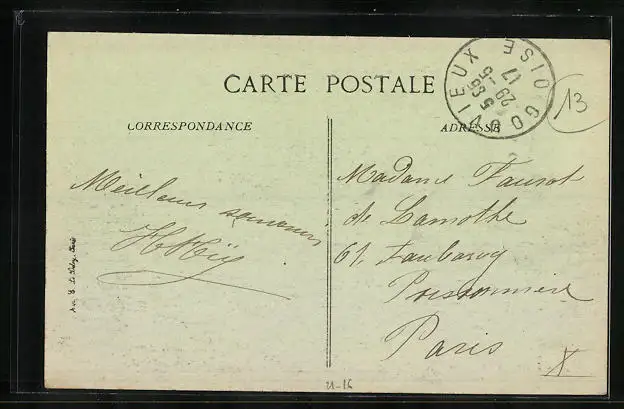 CARTE POSTALE
CORRESPONDANCE
ADRESSE
GOUVIEUX OISE
29 -5
13
Meilleurs souvenirs
Madame Faurot
de Lamothe
61, Faubourg
Poissonnière
Paris
X
21-16